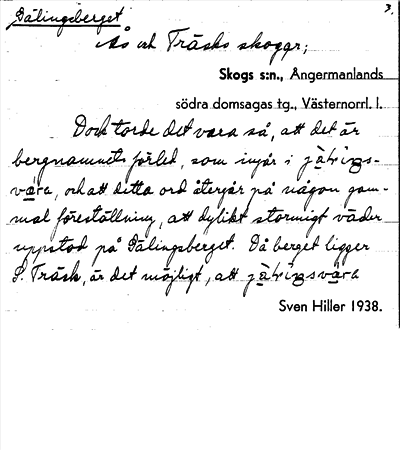 Gälingsberget
3.
Ås och Träsks skogar;
Skogs s:n., Ångermanlands
södra domsagas tg., Västernorrl. l.
Dock torde det vara så, att det är
bergnamnets förled, som ingår i
vara, och att detta ord återgår på någon gam-
mal föreställning, att dylikt stormigt väder
uppstod på Gälingsberget. Då berget ligger
S. Träsk, är det möjligt, att
Sven Hiller 1938.